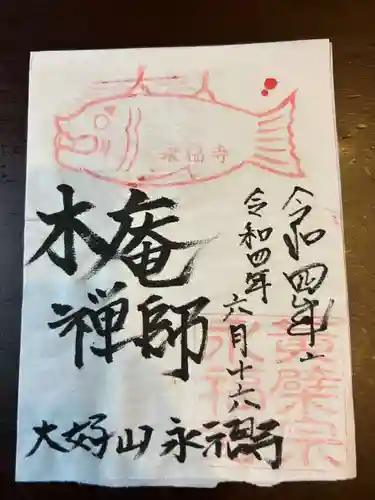 永福寺
令和四年
令和四年
六月十六
木庵
禅師
黄檗宗
永福
大好山永福寺